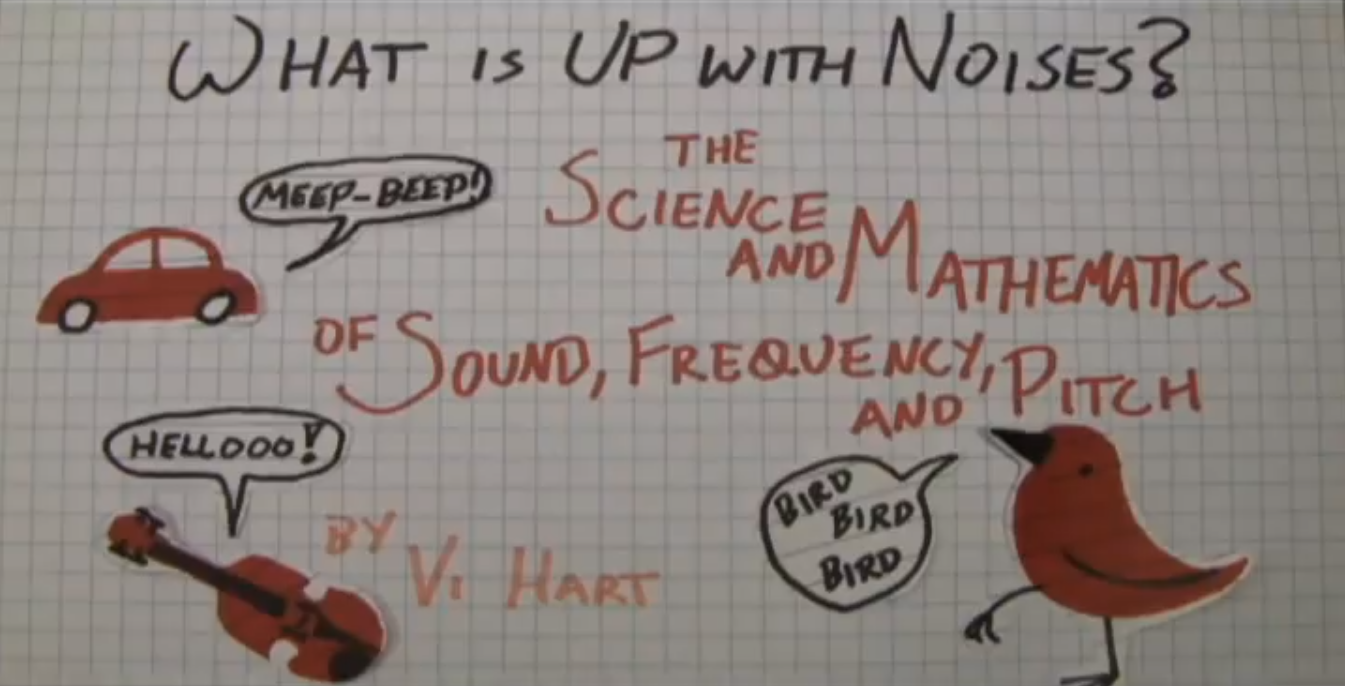 WHAT IS UP WITH NOISES?
MEEP-BEEP!
THE
SCIENCE
AND MATHEMATICS
OF SOUND, FREQUENCY,
AND PITCH
HELLOOO!
BY VI HART
BIRD
BIRD
BIRD